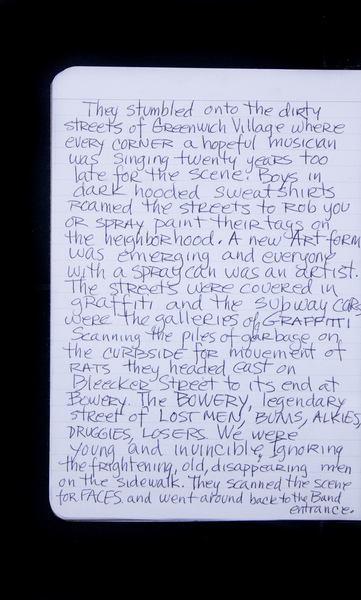 They stumbled onto the dirty
streets of Greenwich Village where
every CORNER a hopeful musician
was singing twenty years too
late for the scene. Boys in
dark hooded sweatshirts
ROAMED the streets to Rob you
OR SPRAY paint their tags on
the neighborhood. A new ART form
was emerging and everyone
with a SPRAY can was an artist.
The streets were covered in
graffiti and the subway CARS
were the galleries of GRAFFITTI
Scanning the piles of garbage on
the CURBSIDE FOR movement of
RATS they headed east on
Bleecker Street to its end at
BOWERY. The BOWERY, legendary
street of LOST MEN, BUMS, ALKIES,
DRUGGIES, LOSERS. We were
young and invincible, Ignoring
the frightening, old, disappearing men
on the sidewalk. They scanned the scene
for FACES. and went around back to the Band
entrance.